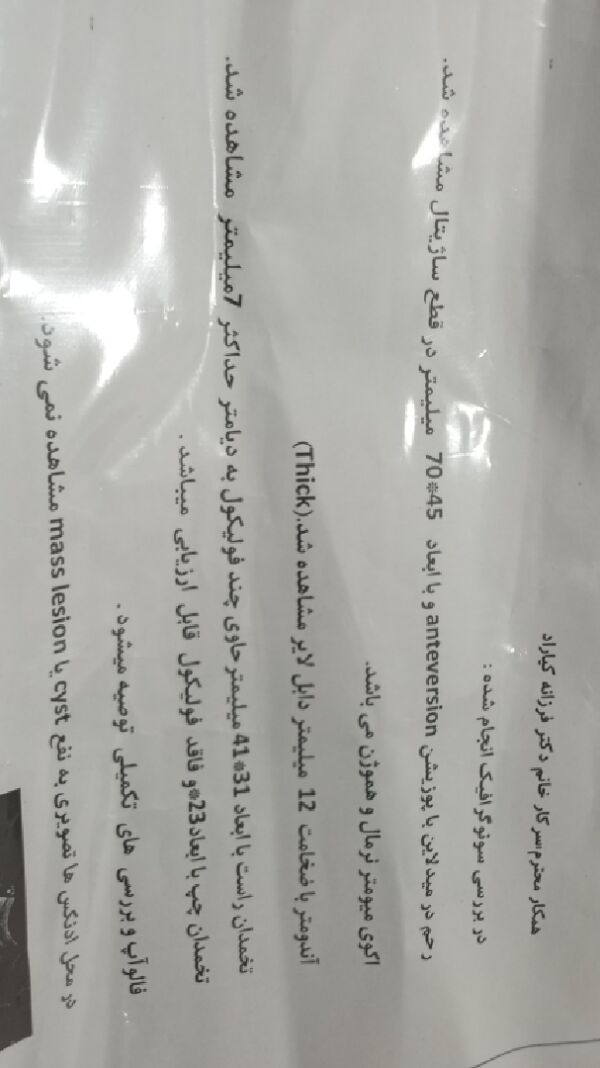 همکار محترم سرکار خانم دکتر فرزانه کیاراد
در بررسی سونوگرافیک انجام شده :
رحم در میدلاین با پوزیشن anteversion و با ابعاد 45*70 میلیمتر در قطع ساژیتال مشاهده شد.
اکوی میومتر نرمال و هموژن می باشد.
آندومتر با ضخامت 12 میلیمتر دابل لایر مشاهده شد.(Thick)
تخمدان راست با ابعاد 31*41 میلیمتر حاوی چند فولیکول به دیامتر حداکثر 7میلیمتر مشاهده شد.
تخمدان چپ با ابعاد23* و فاقد فولیکول قابل ارزیابی میباشد .
فالوآپ و بررسی های تکمیلی توصیه میشود .
در محل ادنکس ها تصویری به نفع cyst یا mass lesion مشاهده نمی شود.